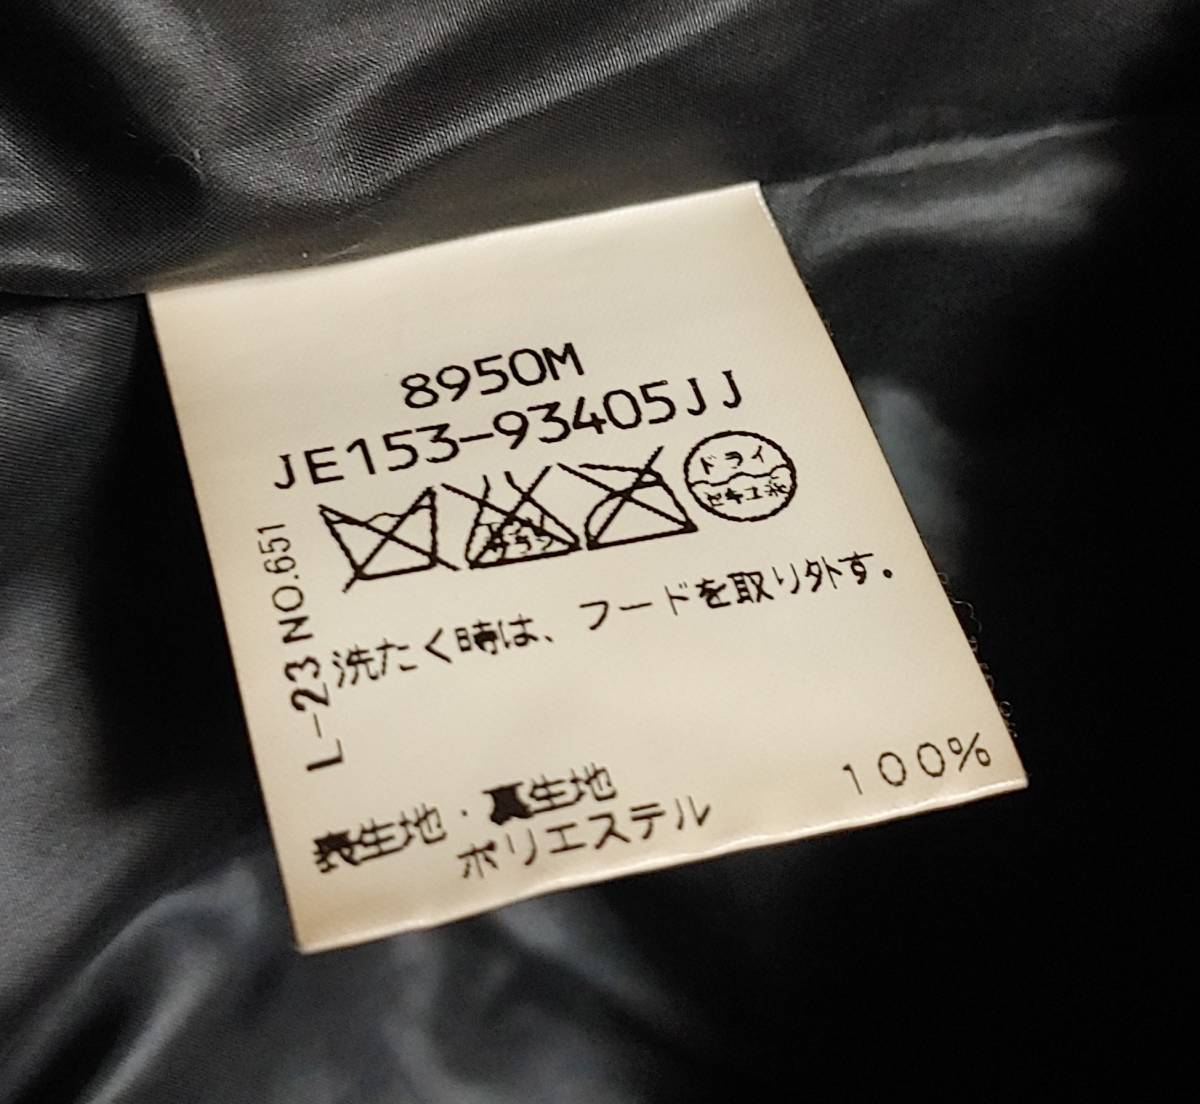 8950M
JE153-93405JJ
エンソ
サラシ
ドライ
セキユ系
L-23 NO.651
洗たく時は、フードを取り外す。
表生地・裏生地
ポリエステル 100%